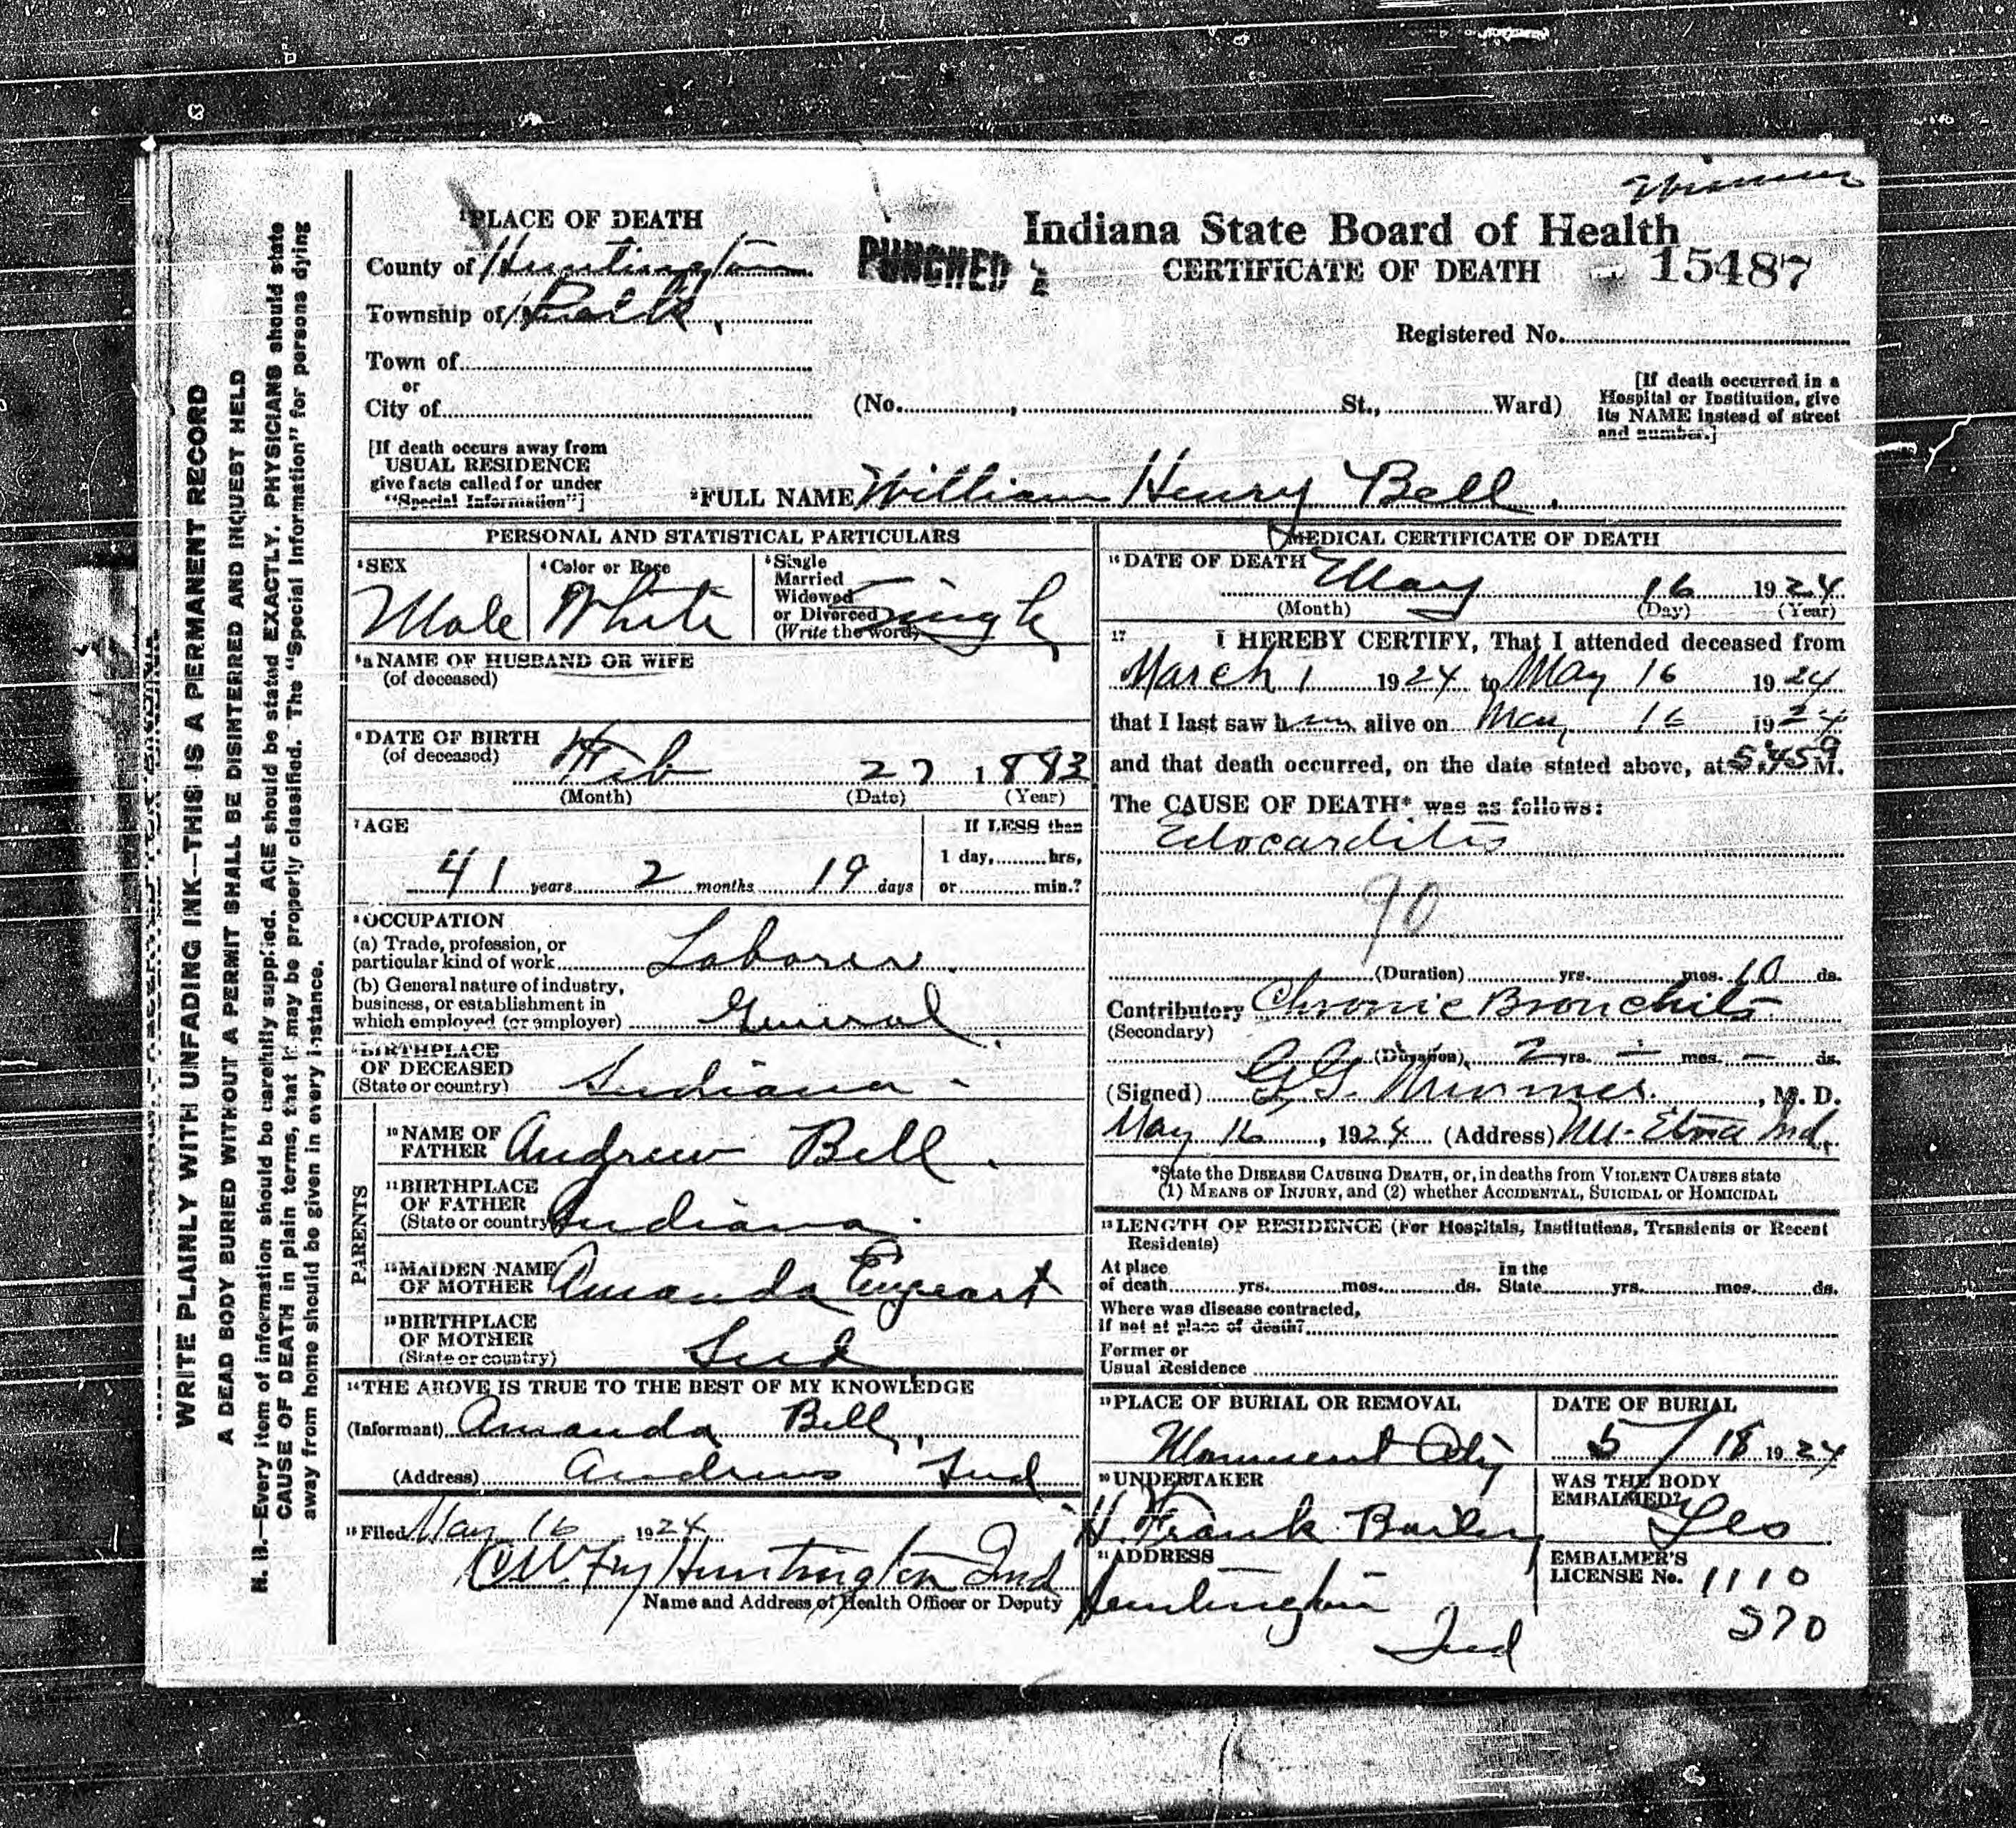 WRITE PLAINLY WITH UNFADING INK—THIS IS A PERMANENT RECORD
A DEAD BODY BURIED WITHOUT A PERMIT SHALL BE DISINTERRED AND INQUEST HELD
N. B.—Every item of information should be carefully supplied. AGE should be stated EXACTLY. PHYSICIANS should state
CAUSE OF DEATH in plain terms, that it may be properly classified. The "Special Information" for persons dying
away from home should be given in every instance.
Indiana State Board of Health
CERTIFICATE OF DEATH
15487
PUNCHED
1 PLACE OF DEATH
County of Huntington
Township of Polk
Town of
or
City of
Registered No.
(No. , St., Ward)
[If death occurred in a
Hospital or Institution, give
its NAME instead of street
and number.]
[If death occurs away from
USUAL RESIDENCE
give facts called for under
"Special Information"]
2 FULL NAME William Henry Bell.
PERSONAL AND STATISTICAL PARTICULARS
3 SEX
Male
4 Color or Race
White
5 Single
Married
Widowed
or Divorced
(Write the word)
Single
5a NAME OF HUSBAND OR WIFE
(of deceased)
6 DATE OF BIRTH
(of deceased)
Feb 27 1883
(Month) (Date) (Year)
7 AGE
41 years 2 months 19 days
If LESS than
1 day, hrs,
or min.?
8 OCCUPATION
(a) Trade, profession, or
particular kind of work Laborer.
(b) General nature of industry,
business, or establishment in
which employed (or employer) General.
9 BIRTHPLACE
OF DECEASED
(State or country) Indiana.
PARENTS
10 NAME OF
FATHER Andrew Bell.
11 BIRTHPLACE
OF FATHER
(State or country) Indiana.
12 MAIDEN NAME
OF MOTHER Amanda Emyeart
13 BIRTHPLACE
OF MOTHER
(State or country) Ind
14 THE ABOVE IS TRUE TO THE BEST OF MY KNOWLEDGE
(Informant) Amanda Bell,
(Address) Andrews Ind
15 Filed May 16 1924
C.W. Fry Huntington Ind
Name and Address of Health Officer or Deputy
MEDICAL CERTIFICATE OF DEATH
16 DATE OF DEATH
May 16 1924
(Month) (Day) (Year)
17 I HEREBY CERTIFY, That I attended deceased from
March 1 1924 to May 16 1924
that I last saw him alive on May 16 1924
and that death occurred, on the date stated above, at 5:45 M.
The CAUSE OF DEATH* was as follows:
Edocarditis
90
(Duration) yrs. mos. 10 ds.
Contributory Chronic Bronchitis
(Secondary)
(Duration) 2 yrs. — mos. — ds.
(Signed) G.G. Wimmer. , M. D.
May 16 , 1924 (Address) Mt-Etna Ind,
*State the DISEASE CAUSING DEATH, or, in deaths from VIOLENT CAUSES state
(1) MEANS OF INJURY, and (2) whether ACCIDENTAL, SUICIDAL or HOMICIDAL
18 LENGTH OF RESIDENCE (For Hospitals, Institutions, Transients or Recent
Residents)
At place
of death yrs. mos. ds.
In the
State yrs. mos. ds.
Where was disease contracted,
if not at place of death?
Former or
Usual Residence
19 PLACE OF BURIAL OR REMOVAL
Monument City
DATE OF BURIAL
5/18 1924
20 UNDERTAKER
H. Frank Bailey
WAS THE BODY
EMBALMED?
Yes
21 ADDRESS
Huntington
Ind
EMBALMER'S
LICENSE No. 1110
570